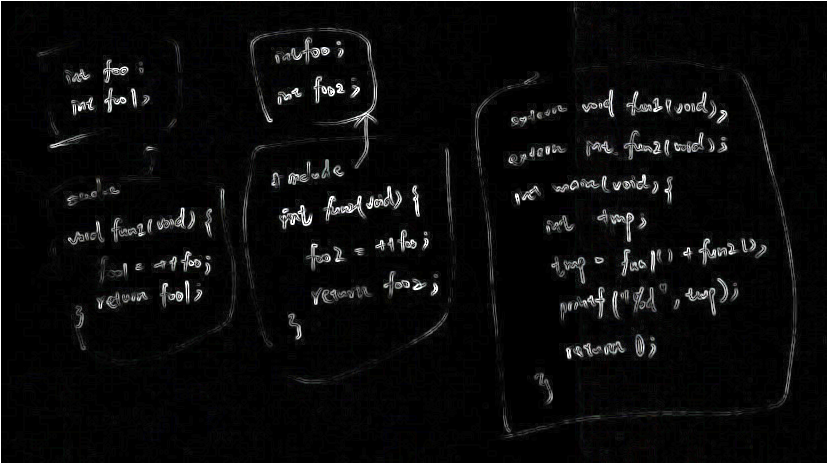 int foo;
int foo1;
void fun1(void) {
foo1 = ++foo;
return foo1;
}
int foo;
int foo2;
include
int fun2(void) {
foo2 = ++foo;
return foo2;
}
extern void fun1(void);
extern int fun2(void);
int main(void) {
int tmp;
tmp = fun1() + fun2();
printf("%d", tmp);
return 0;
}